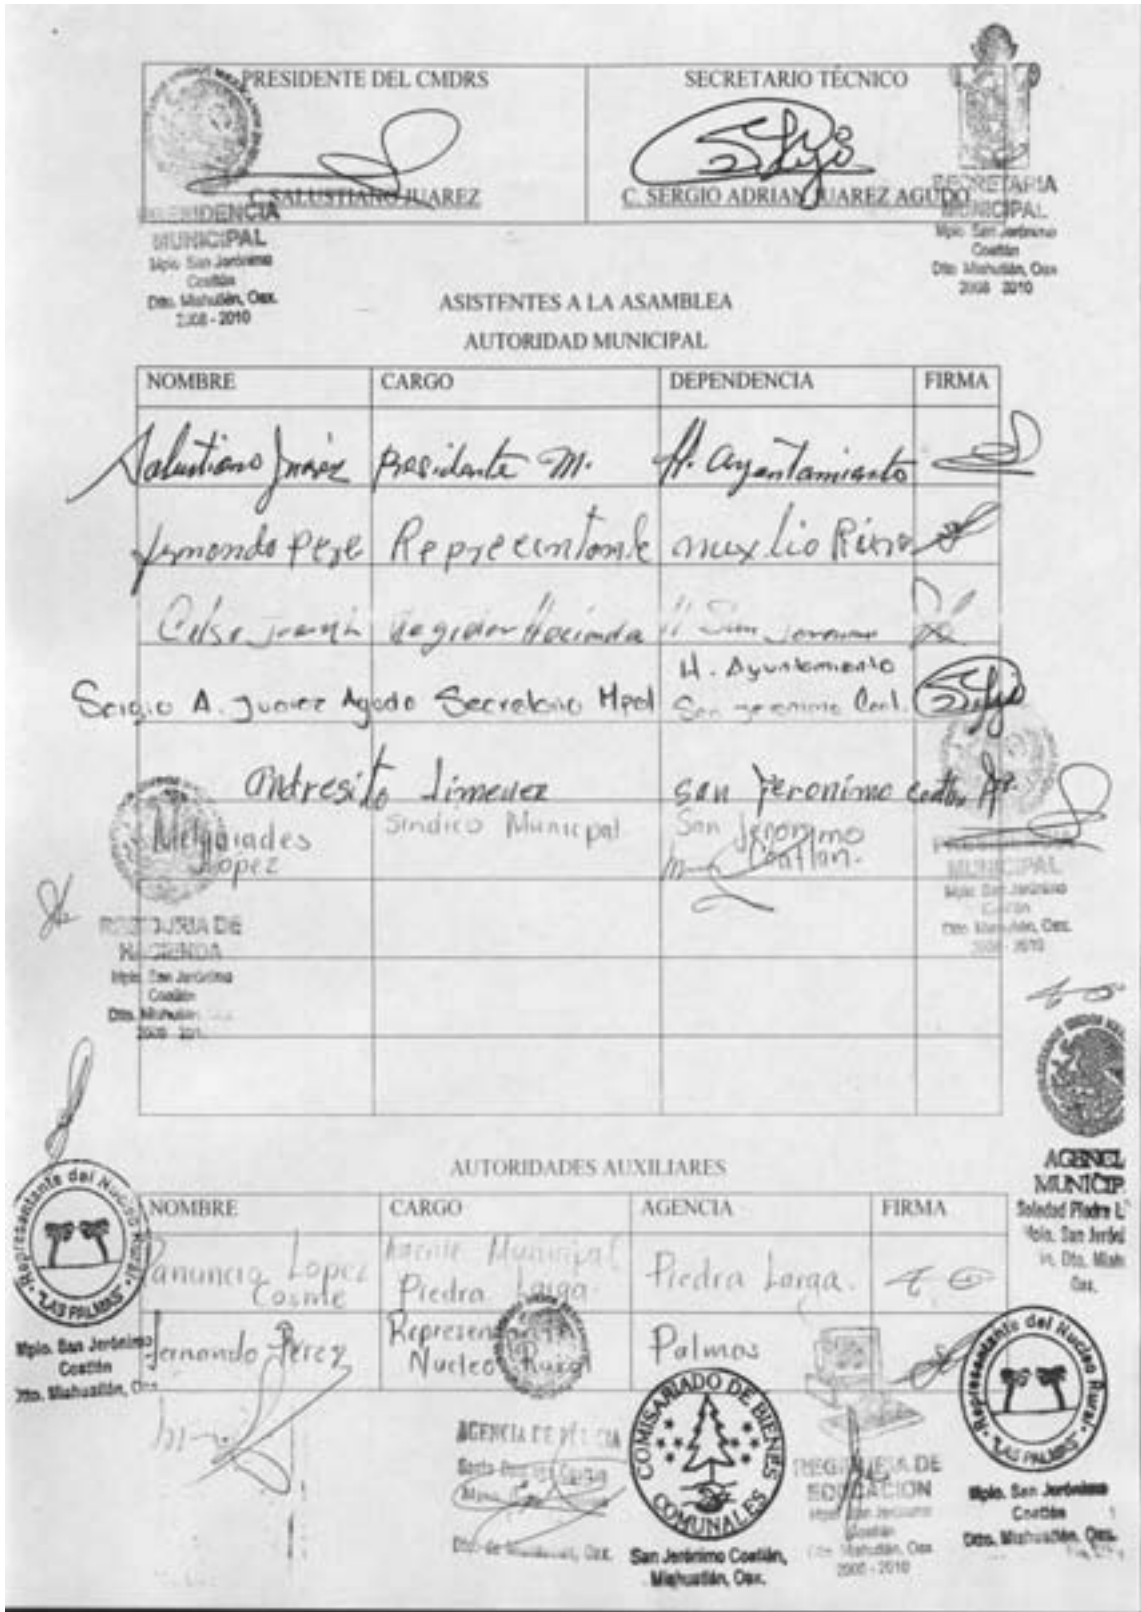 PRESIDENTE DEL CMDRS
SECRETARIO TÉCNICO
C. SALUSTIANO JUAREZ
C. SERGIO ADRIAN JUAREZ AGUDO
PRESIDENCIA
MUNICIPAL
Mpio. San Jerónimo
Coatlán
Dtto. Miahuatlán, Oax.
2008 - 2010
SECRETARIA
MUNICIPAL
Mpio. San Jerónimo
Coatlán
Dtto. Miahuatlán, Oax
2008 2010
ASISTENTES A LA ASAMBLEA
AUTORIDAD MUNICIPAL
NOMBRE CARGO DEPENDENCIA FIRMA
Salustiano Juárez Presidente M. H. ayuntamiento
Representante
Regidor Hacienda
Sergio A. Juarez Agudo Secretario Mpal H. Ayuntamiento
San Jeronimo Coat.
Andresito Jimenez San Jeronimo
Melquiades
Lopez
Sindico Municpal
San Jeronimo
Coatlan.
REGIDURIA DE
HACIENDA
Mpio. San Jerónimo
Coatlán
Dtto. Miahuatlán
PRESIDENCIA
MUNICIPAL
Mpio. San Jerónimo
Coatlán
Dtto. Miahuatlán, Oax.
2008 - 2010
AGENCI
MUNICIP
Soledad Piedra L
Mpio. San Jeróni
Dto. Miah
Oax.
AUTORIDADES AUXILIARES
NOMBRE CARGO AGENCIA FIRMA
Lopez
Cosme
Agente Municipal
Piedra Larga.
Piedra Larga.
Fernando Pérez
Nucleo Rural
Palmas
Representante del Nucleo Rural
"LAS PALMAS"
Mpio. San Jerónimo
Coatlán
Dtto. Miahuatlán,
AGENCIA DE POLICIA
COMISARIADO DE BIENES
COMUNALES
San Jerónimo Coatlán,
Miahuatlán, Oax.
REGIDURIA DE
EDUCACION
Mpio. San Jerónimo
Coatlán
Dtto. Miahuatlán, Oax
2008 - 2010
Representante del Nucleo Rural
"LAS PALMAS"
Mpio. San Jerónimo
Coatlán
Dtto. Miahuatlán, Oax.